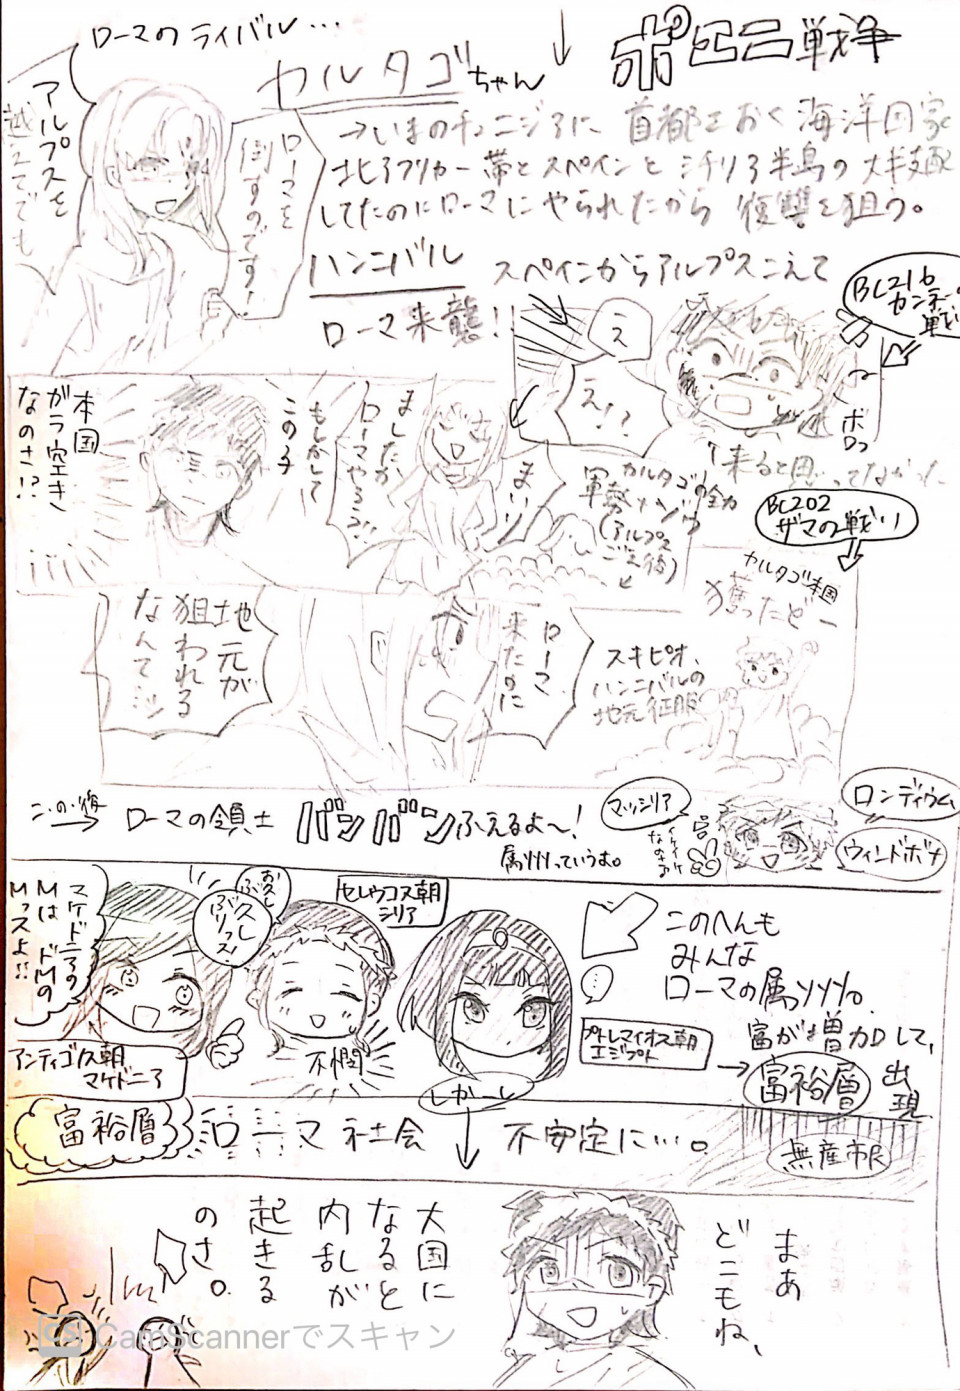 ポエニ戦争
ローマのライバル…
カルタゴちゃん
アルプスを
越えてでも
ローマを
倒すのです!
→いまのチュニジアに 首都をおく 海洋国家
北アフリカ一帯とスペインと シチリア半島の 大半支配
してたのにローマに やられたから 復讐を狙う。
ハンニバル スペインからアルプスこえて
ローマ来襲!
BC216
カンネーの
戦い
え
え!?
ボロっ
↑来ると思ってなかった
まいり
ましたか
ローマやろう!!
もしかして
この子
本国
がラ空き
なのさ!?
カルタゴの全力
軍勢+ゾウ
(アルプス
ごえ後)
BC202
ザマの戦い
カルタゴ本国
獲ったどー
スキピオ、
ハンニバルの
地元征服
ローマ
来たのに
地元が
狙われる
なんてッ
この後
→ ローマの領土 バンバンふえるよ〜!
属州っていうよ。
マッシリア
ロンディウム
ウィンドボナ
イケイケ
なのさ
マケドニアの
Mは ドMの
Mっスよ!!
お久し
ぶり
久し
ぶりっス!
セレウコス朝
シリア
アンティゴノス朝
マケドニア
不憫
プトレマイオス朝
エジプト
このへんも
みんな
ローマの属州。
富が増加して、
→富裕層 出現
しかーし
富裕層
ローマ社会 不安定に…。
無産市民
まあ
どこもね、
大国に
なると
内乱が
起きる
のさ。
CS CamScannerでスキャン